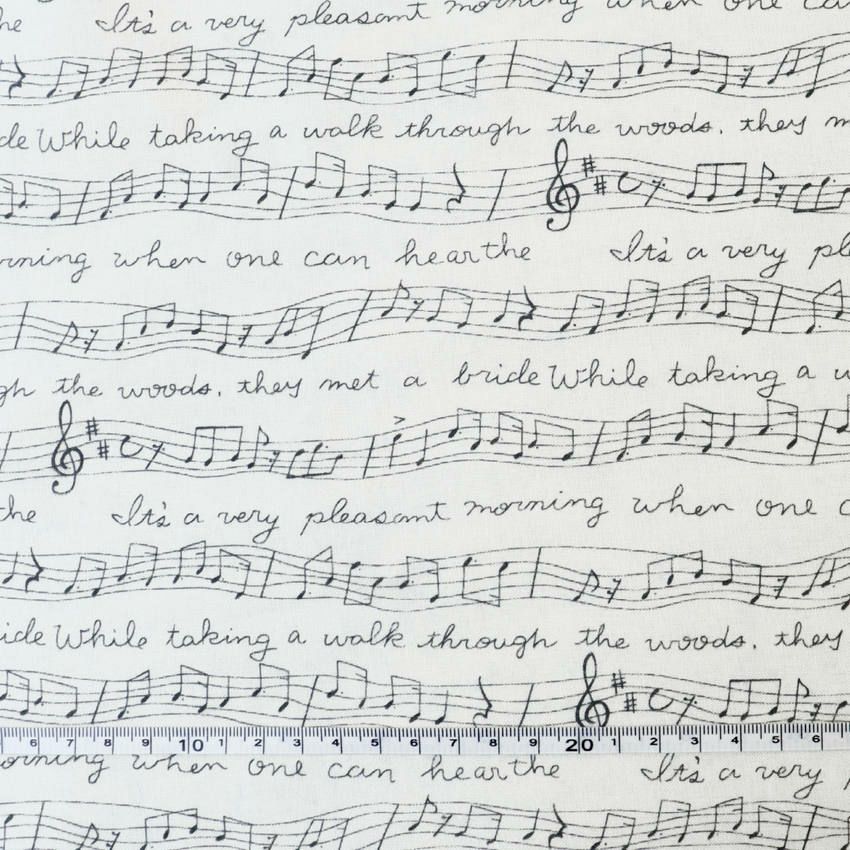 he It's a very pleasant morning when one ca
de While taking a walk through the woods. they m
rning when one can hear the It's a very ple
gh the woods. they met a bride While taking a w
the It's a very pleasant morning when one c
ide While taking a walk through the woods. they
6 7 8 9 10 1 2 3 4 5 6 7 8 9 20 1 2 3 4 5 6
orning when one can hear the It's a very p